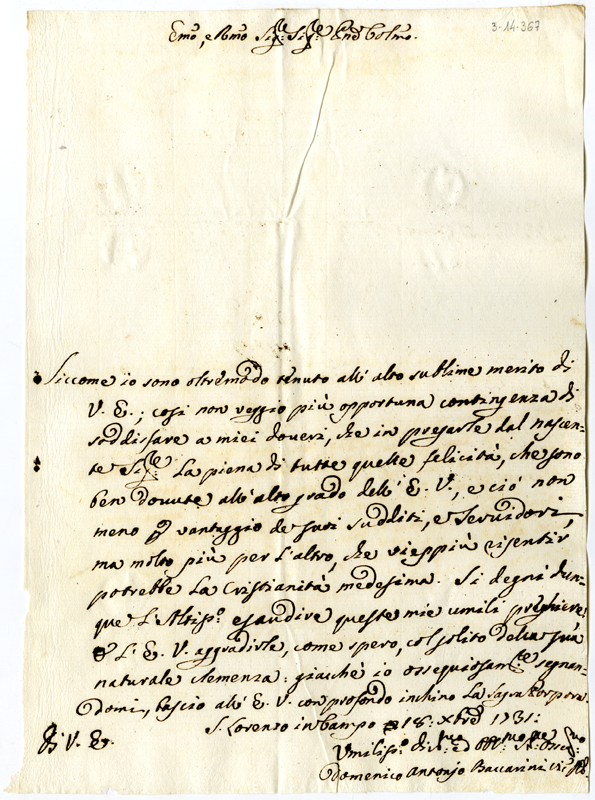 3-14-367
Emo, e Rmo Sigre: Sigre: Pne Colmo.
Siccome io sono oltremodo tenuto all' alto sublime merito di
V. E.; così non veggio più opportuna contingenza di
soddisfare a miei doveri, che in pregarle dal nascen-
te Sigre La piena di tutte quelle felicità, che sono
ben dovute all' alto grado dell' E. V., e ciò non
meno p vantaggio de suoi sudditi, e Servidori,
ma molto più per l'altro, che vieppiù risentir
potrebbe La Cristianità medesima. Si degni dun-
que L'Altisso. esaudire queste mie umili preghiere,
e L' E. V. aggradirle, come spero, col solito della sua
naturale clemenza: giacchè io ossequiosamte segnan-
domi, bacio all' E. V. con profondo inchino La Sagra Porpora.
S. Lorenzo in Campo 18: Xbre 1731:
Di V. E.
Umilisso. divmo ed
Domenico Antonio Baccarini